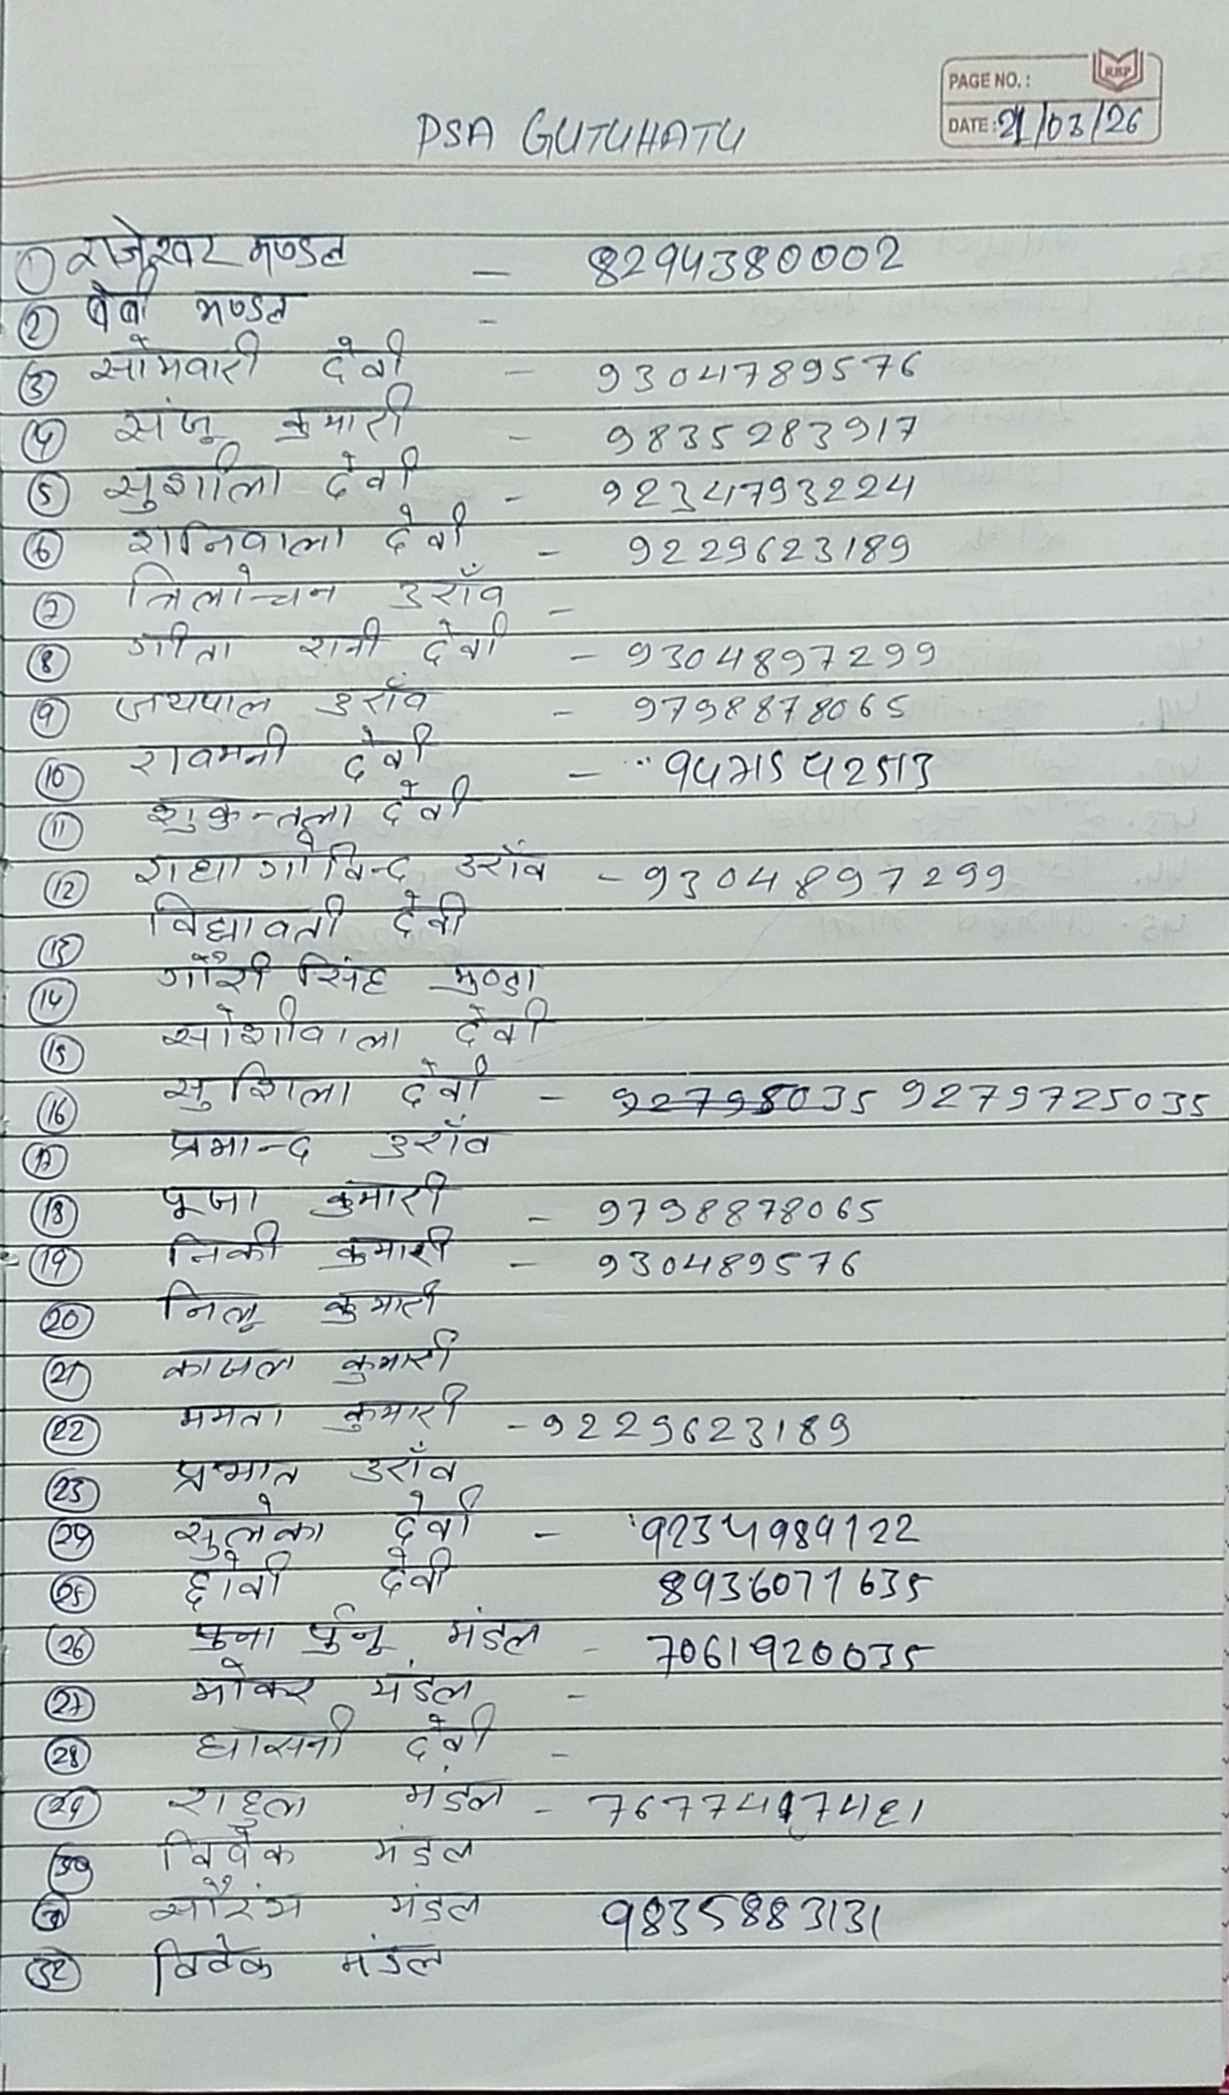 PAGE NO.:
RBP
DATE: 21/03/26
PSA GUTUHATU
① राजेश्वर मण्डल - 8294380002
② बेबी मण्डल -
③ सोमवारी देवी - 9304789576
④ संजू कुमारी - 9835283917
⑤ सुशीला देवी - 9234793224
⑥ शनिवाला देवी - 9229623189
⑦ त्रिलोचन उराँव -
⑧ गीता रानी देवी - 9304897299
⑨ जयपाल उराँव - 9798878065
⑩ रावमनी देवी - 9471542513
⑪ शुकुन्तला देवी
⑫ राधा गोविन्द उराँव - 9304897299
⑬ विद्यावती देवी
⑭ गौरी सिंह मुण्डा
⑮ सोशीवाला देवी
⑯ सुशिला देवी - 92798035 9279725035
⑰ प्रमान्द उराँव
⑱ पूजा कुमारी - 9798878065
⑲ निकी कुमारी - 930489576
⑳ निलू कुमारी
㉑ काजल कुमारी
㉒ ममता कुमारी - 9229623189
㉓ प्रभात उराँव
㉔ सुलेका देवी - 9234989122
㉕ छोवी देवी 8936071635
㉖ पुर्नू मंडल - 7061920035
㉗ मंडल -
㉘ घासनी देवी -
㉙ राहुल मंडल -
㉚ विवेक मंडल
㉛ मंडल 9835883131
㉜ विवेक मंडल